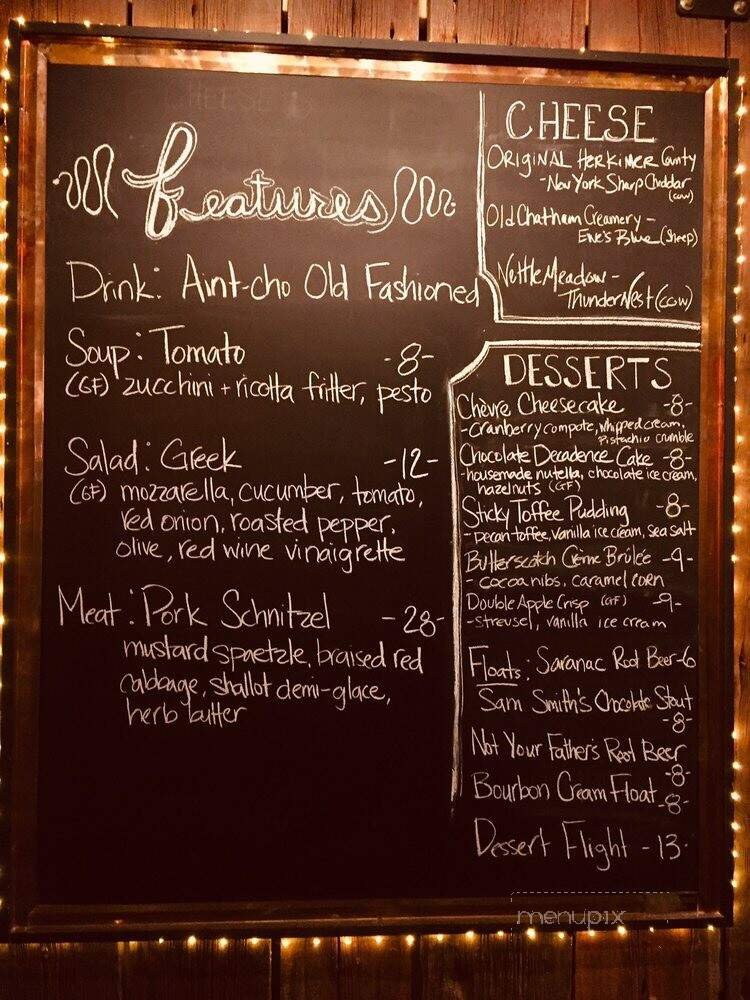 Features
Drink: Aint-cho Old Fashioned
Soup: Tomato -8-
(GF) zucchini + ricotta fritter, pesto
Salad: Greek -12-
(GF) mozzarella, cucumber, tomato,
red onion, roasted pepper,
olive, red wine vinaigrette
Meat: Pork Schnitzel -28-
mustard spaetzle, braised red
cabbage, shallot demi-glace,
herb butter
CHEESE
ORIGINAL HERKIMER County
-New York Sharp Cheddar
(cow)
Old Chatham Creamery -
Ewe's Blue (sheep)
Nettle Meadow -
Thunder Nest (cow)
DESSERTS
Chèvre Cheesecake -8-
-Cranberry compote, whipped cream,
Pistachio crumble
Chocolate Decadence Cake -8-
-housemade nutella, chocolate ice cream,
hazelnuts (GF)
Sticky Toffee Pudding -8-
-pecan toffee, vanilla ice cream, sea salt
Butterscotch Crème Brûlée -9-
-cocoa nibs, caramel corn
Double Apple Crisp (GF) -9-
-streusel, vanilla ice cream
Floats: Saranac Root Beer-6
Sam Smith's Chocolate Stout
-8-
Not Your Father's Root Beer
-8-
Bourbon Cream Float -8-
Dessert Flight -13-
menupix